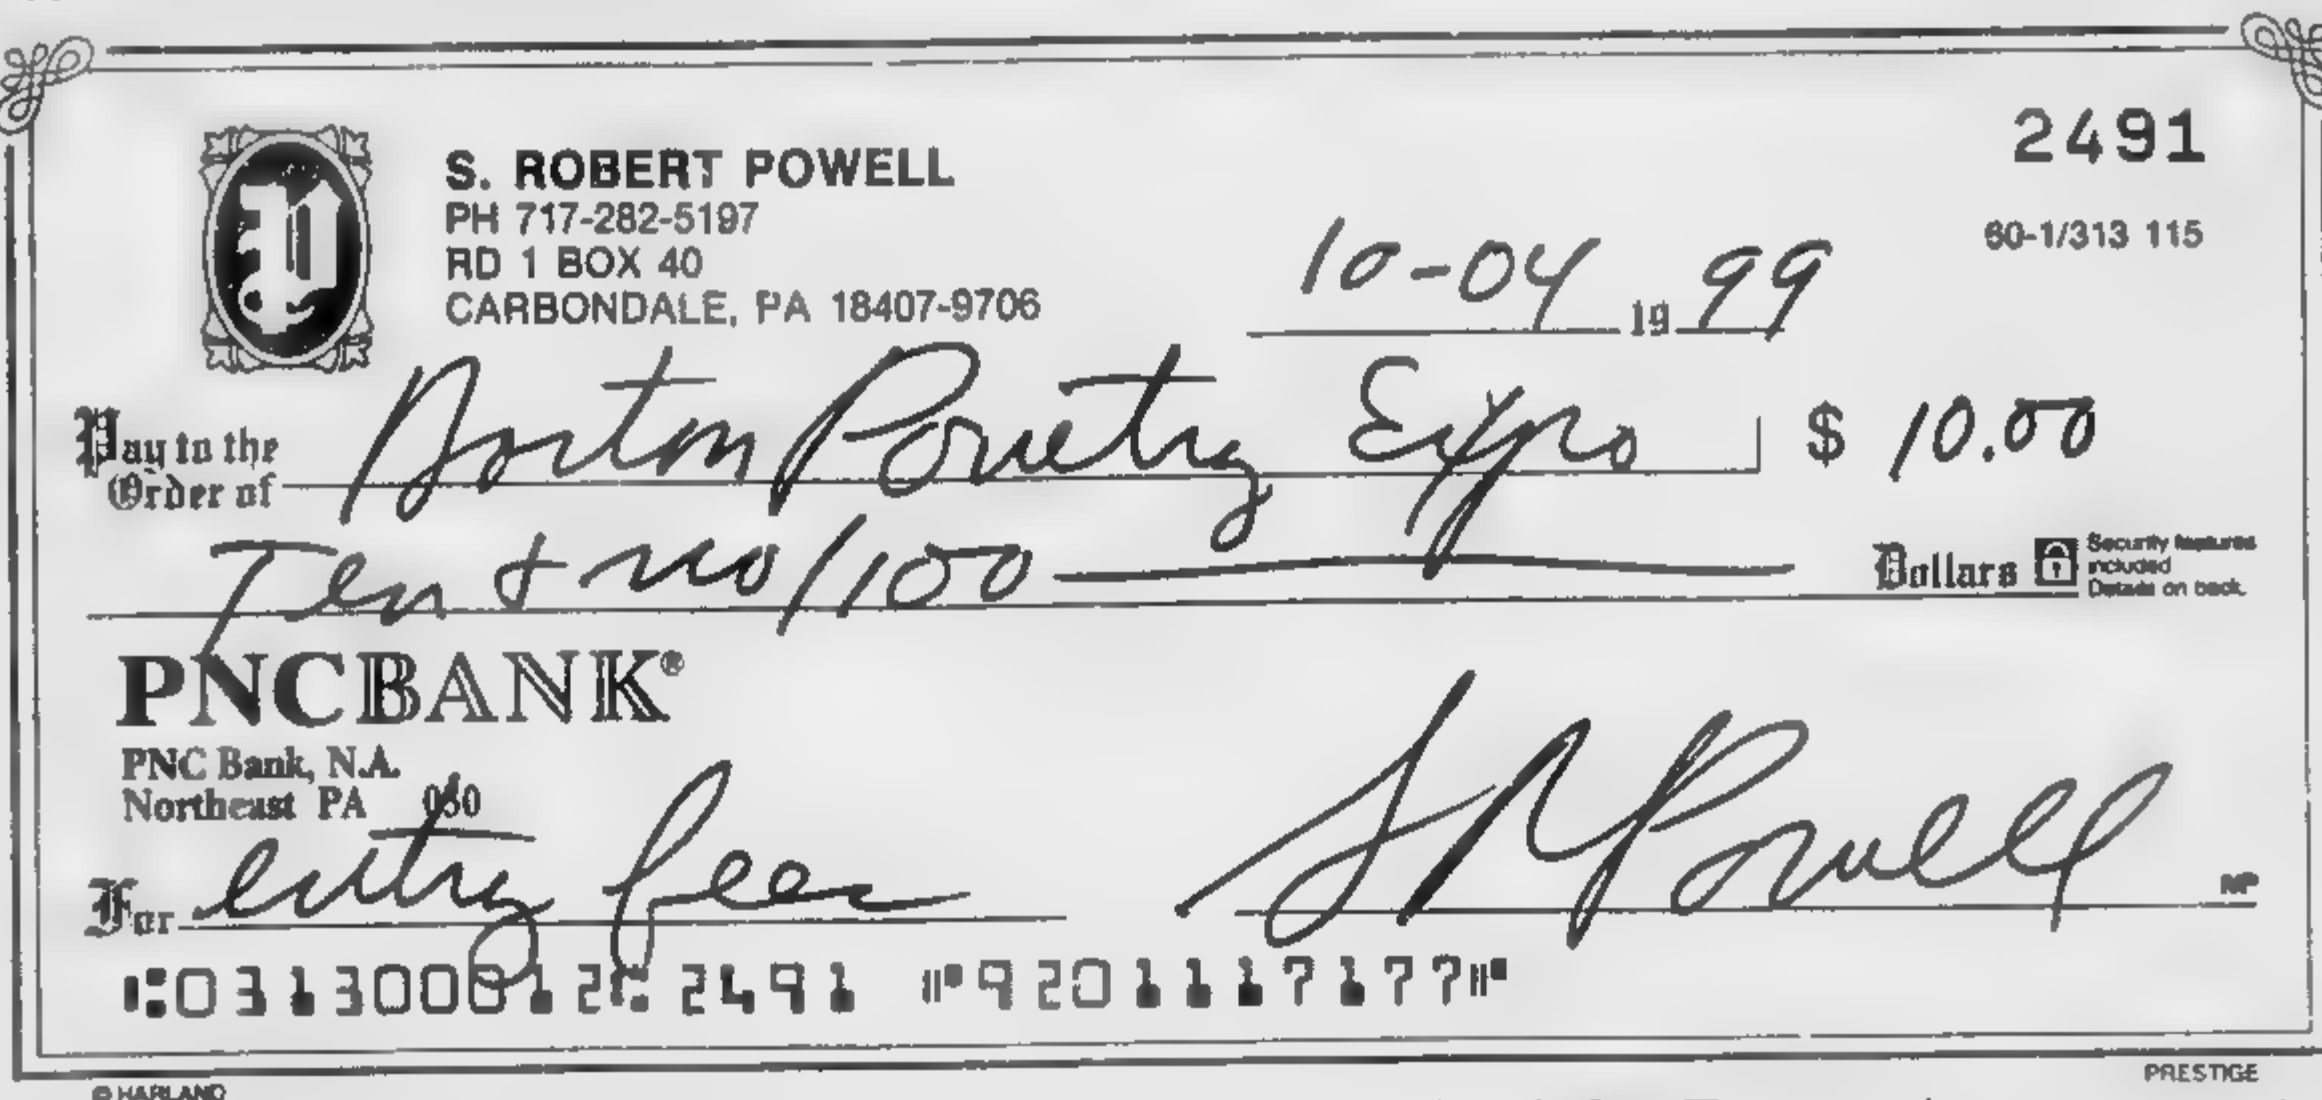 2491
S. ROBERT POWELL
PH 717-282-5197
RD 1 BOX 40
CARBONDALE, PA 18407-9706
60-1/313 115
10-04 19 99
Pay to the Order of Boston Poultry Expo $ 10.00
Ten + no/100 Dollars
Security features included Details on back.
PNCBANK®
PNC Bank, N.A.
Northeast PA 050
For entry fees S R Powell MP
⑆031300012⑆ 2491 ⑈9201117177⑈
© HARLAND PRESTIGE